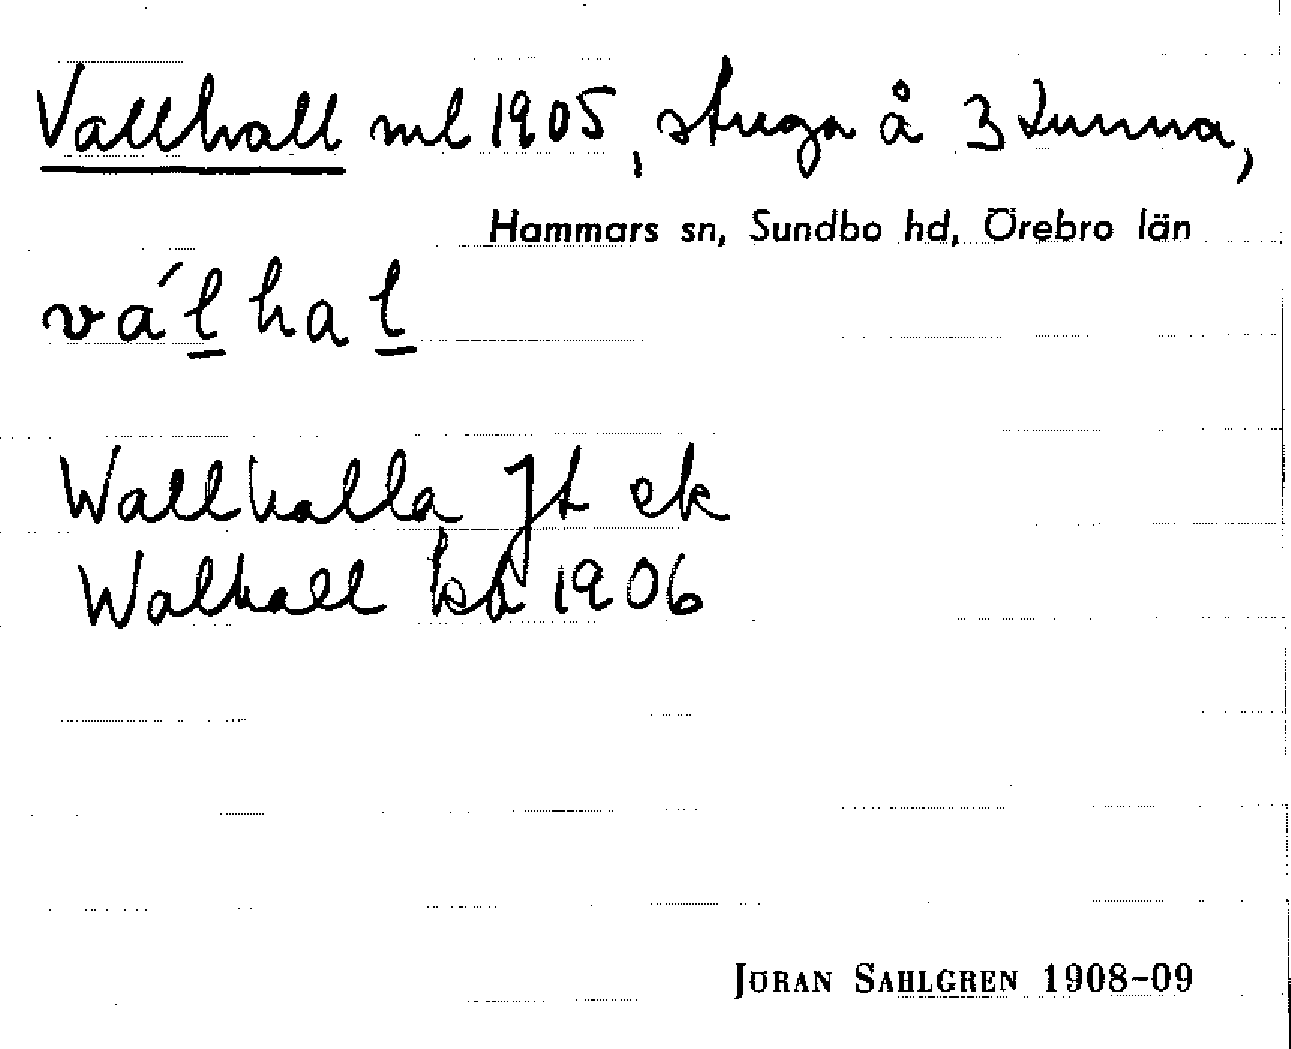 Vallhall ml 1905, stuga å 3 Lunna,
Hammars sn, Sundbo hd, Örebro län
vá́l̲ hal̲
Wallhalla Jt ek
Walhall kb 1906
JÖRAN SAHLGREN 1908–09